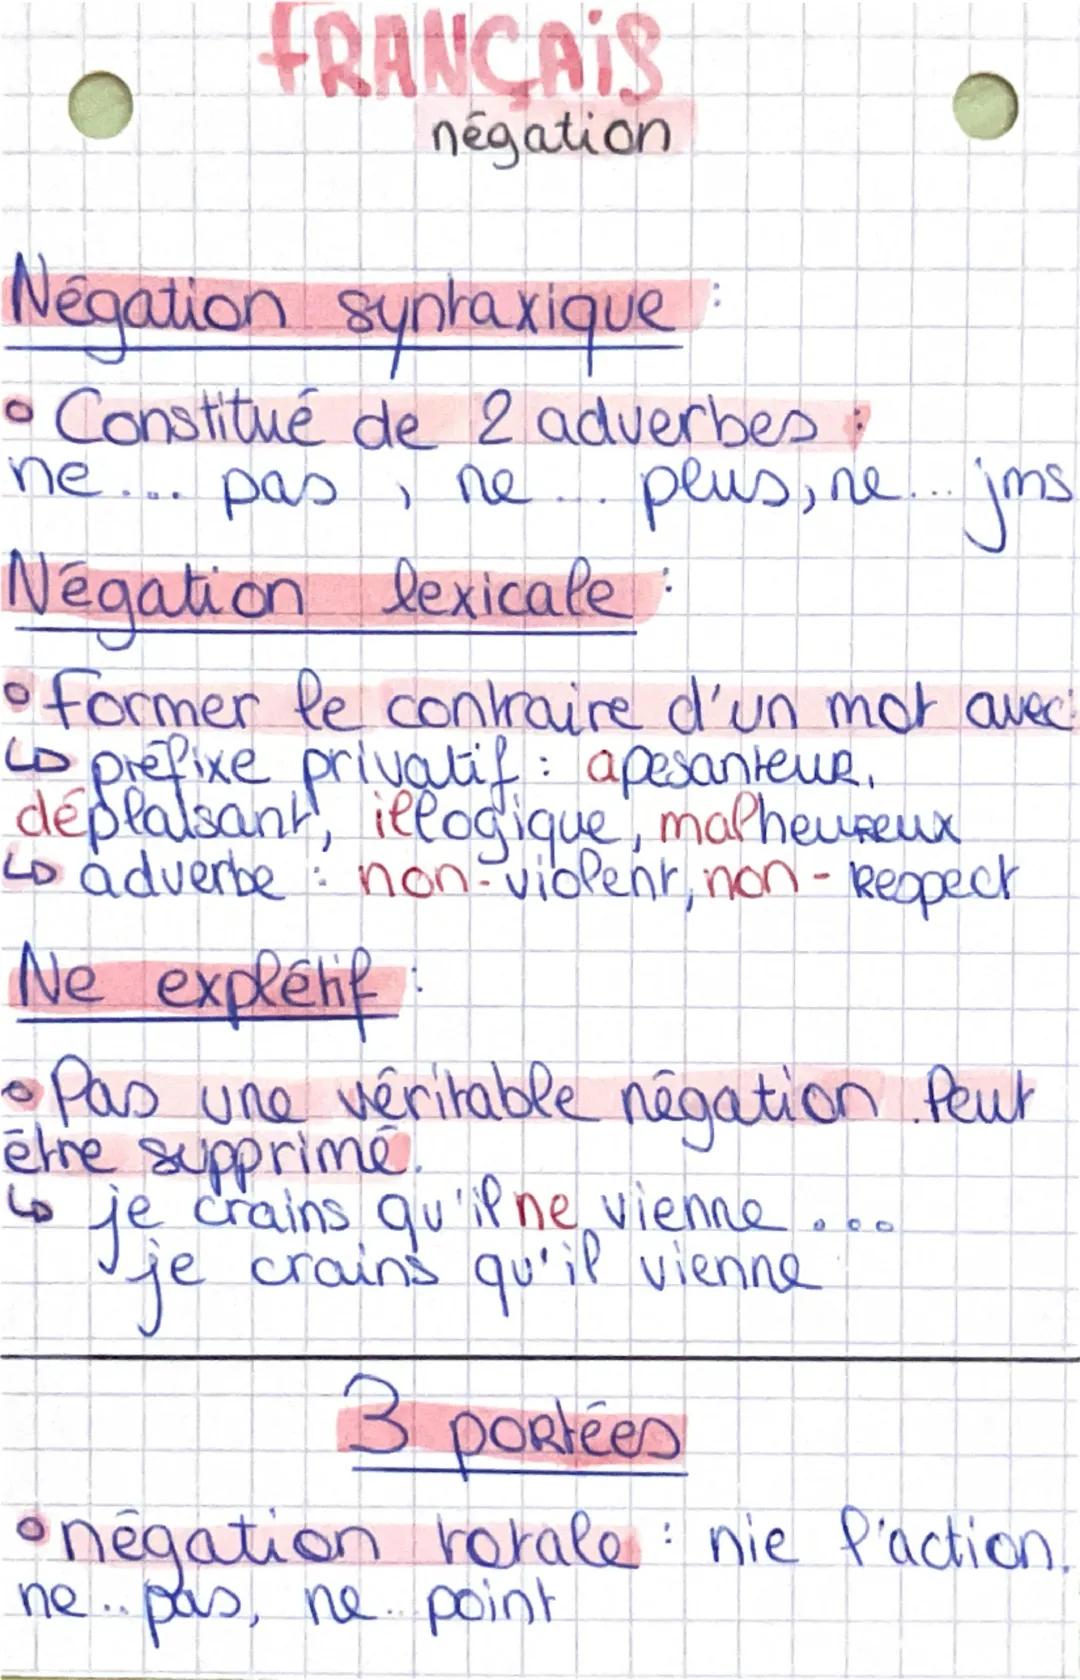 FRANÇAiS
négation
Négation syntaxique :
• Constitué de 2 adverbes :
ne... pas , ne ... plus, ne... jms
Négation lexicale :
• former le contraire d'un mot avec :
↳ préfixe privatif : apesanteur,
déplaisant, illogique, malheureux
↳ adverbe : non-violent, non-respect
Ne explétif :
• Pas une véritable négation. Peut
être supprimé.
↳ je crains qu'il ne vienne ....
je crains qu'il vienne
3 portées
• négation totale : nie l'action.
ne .. pas, ne .. point